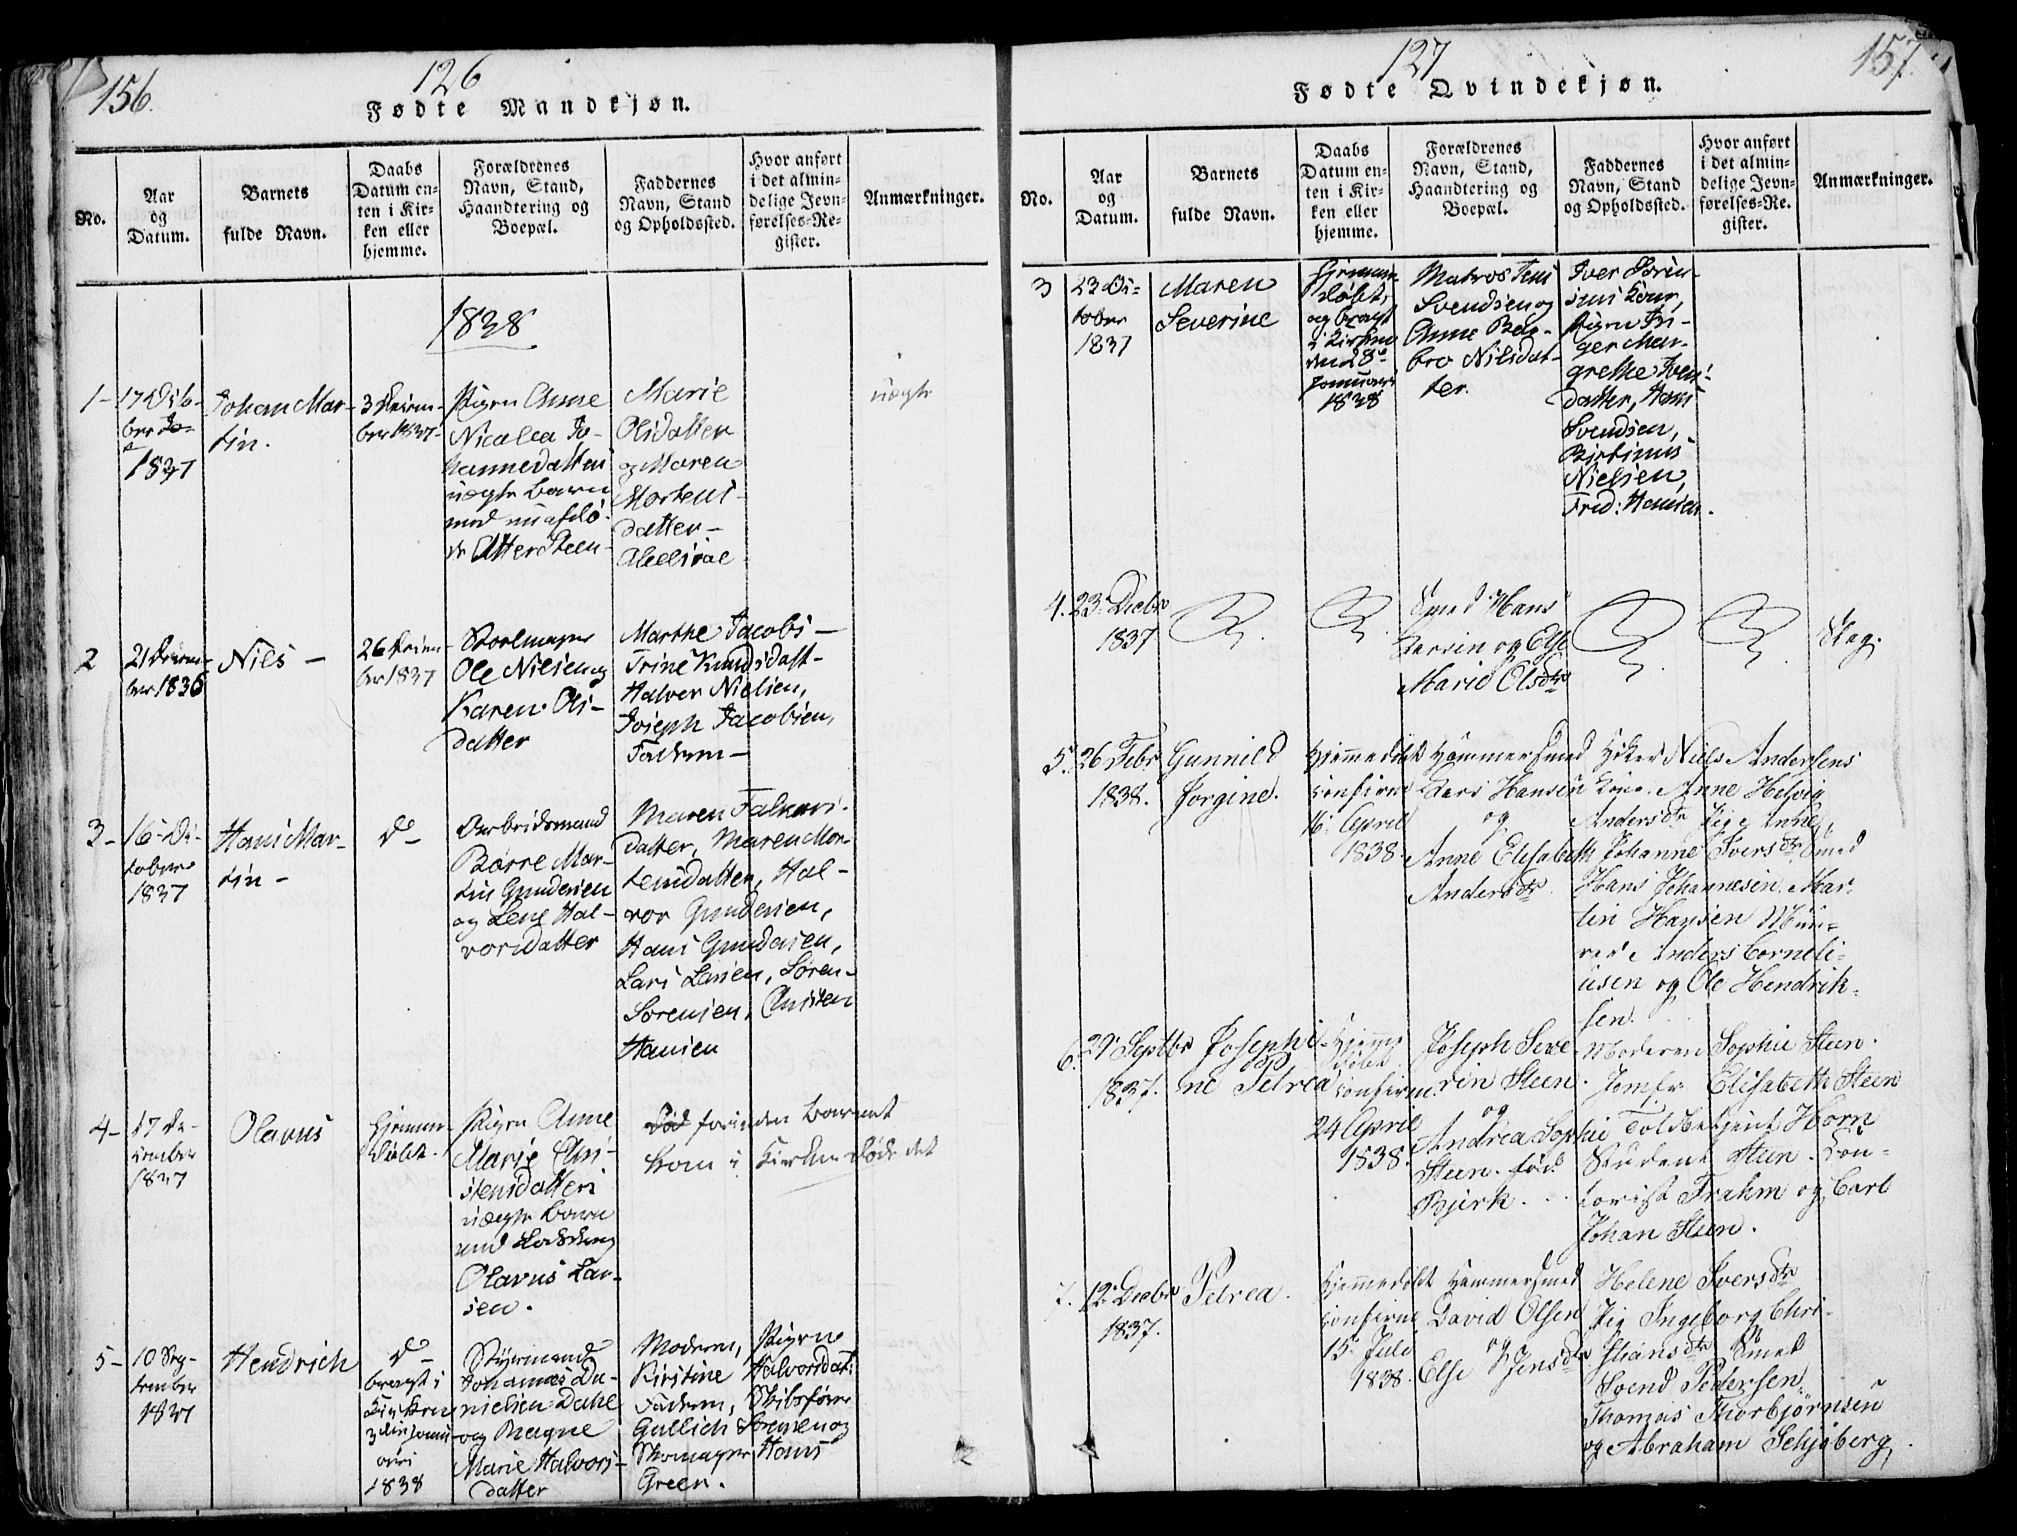 156.
126
Fødte Mandkjøn.
No.
Aar
og
Datum.
Barnets
fulde Navn.
Daabs
Datum en-
ten i Kir-
ken eller
hjemme.
Forældrenes
Navn, Stand,
Haandtering og
Boepæl.
Faddernes
Navn, Stand
og Opholdssted.
Hvor anført
i det almin-
delige Jevn-
førelses-Re-
gister.
Anmærkninger.
1838
1-
17
1837
Johan Mar-
tin.
3 Decem-
ber 1837-
Pigen Anne
Nicolea Jo-
hannedatters
uægte Barn
med
Marie
Olsdatter
og Maren
Mortens-
datter-
uægte
2
21 Decem-
ber 1836
Nils -
26 Decem-
ber 1837
Ole Nielsen og
Karen Ols-
datter
Marthe Jacobs-
Trine Knudsdatt-
Halver Nielsen,
Joseph Jacobsen,
Faderen-
3-
16 Oc-
tober
1837
Hans Mar-
tin -
do-
Arbeidsmand
Børre Mar-
tin Gundersen
og Lene Hal-
vorsdatter
Maren
datter, Maren Mor-
tensdatter, Hal-
vor Gundersen,
Hans Gundersen,
Lars Larsen, Søren
Sørensen,
Hansen
4-
17 De-
cember
1837
Olavus
Hjemme-
døbt.
Pigen Anne
Marie
uægte Barn
med
Olavus Lar-
sen.
forinden Barnet
kom i Kirken døde det
5-
10 Sep-
tember
1837
Hendrich
do-
bragt i
Kirken
1838
Styrmand
Johannes Da-
nielsen Dahl
og Ragne
Marie Halvors-
datter
Moderen, Pigen
Kirstine Halvorsdat:
Faderen, Skibsfører
Gullich Sørensen og
Skomager Hans
Green.
127
157.
Fødte Qvindekjøn.
No.
Aar
og
Datum.
Barnets
fulde Navn.
Daabs
Datum en-
ten i Kir-
ken eller
hjemme.
Forældrenes
Navn, Stand,
Haandtering og
Boepæl.
Faddernes
Navn, Stand
og Opholdssted.
Hvor anført
i det almin-
delige Jevn-
førelses-Re-
gister.
Anmærkninger.
3
23 Oc-
tober
1837
Maren
Severine
Hjemme-
døbt,
og bragt
i Kirken
den 28
Januari
1838
Matros Jens
Svendsen og
Anne Bar-
bro Nilsdat-
ter.
Iver Søren-
sens Kone,
Pigen In-
ger Mar-
grethe Ivers-
datter, Hans
Svendsen,
Nielsen,
Fred: Hansen.
4.
23 Decbr
1837
Smed Hans
Larsen og Else
Marie Olsdtr
5.
26 Febr
1838.
Gunnild
Jorgine.
Hjemmedøbt
confirm
16 April
1838.
Hammersmed
Lars Hansen
og
Anne Elisabeth
Andersdtr.
Niels Andersens
Kone Anne Helvig
Andersdtr Pig Anne
Johanne Iversdtr Smed
Hans Johannesen, Mar-
tin Hansen
Anders Corneli-
usen og Ole Hendrik-
sen.
6.
29 Septbr
1837.
Josephi-
ne Petrea
Hjemme
døbt
confirm.
24 April
1838.
Joseph Seve-
rin Steen.
og
Andrea Sophie
Steen. fød
Bjerk.
Moderen Sophie Steen.
Jomfr Elisabeth Steen
Toldbetjent Horn
Student Steen. Con-
torist Frahm og Carl
Johan Steen.
7.
12 Decbr
1837.
Petrea.
Hjemmedøbt
confirm
15 Juli
1838.
Hammersmed
David Olsen
og
Else Jensdtr
Helene Iversdtr
Pig Ingeborg Chri-
stiansdtr Smed
Svend Pedersen,
Thomas Thorbjørnsen
og Abraham Schjøberg.